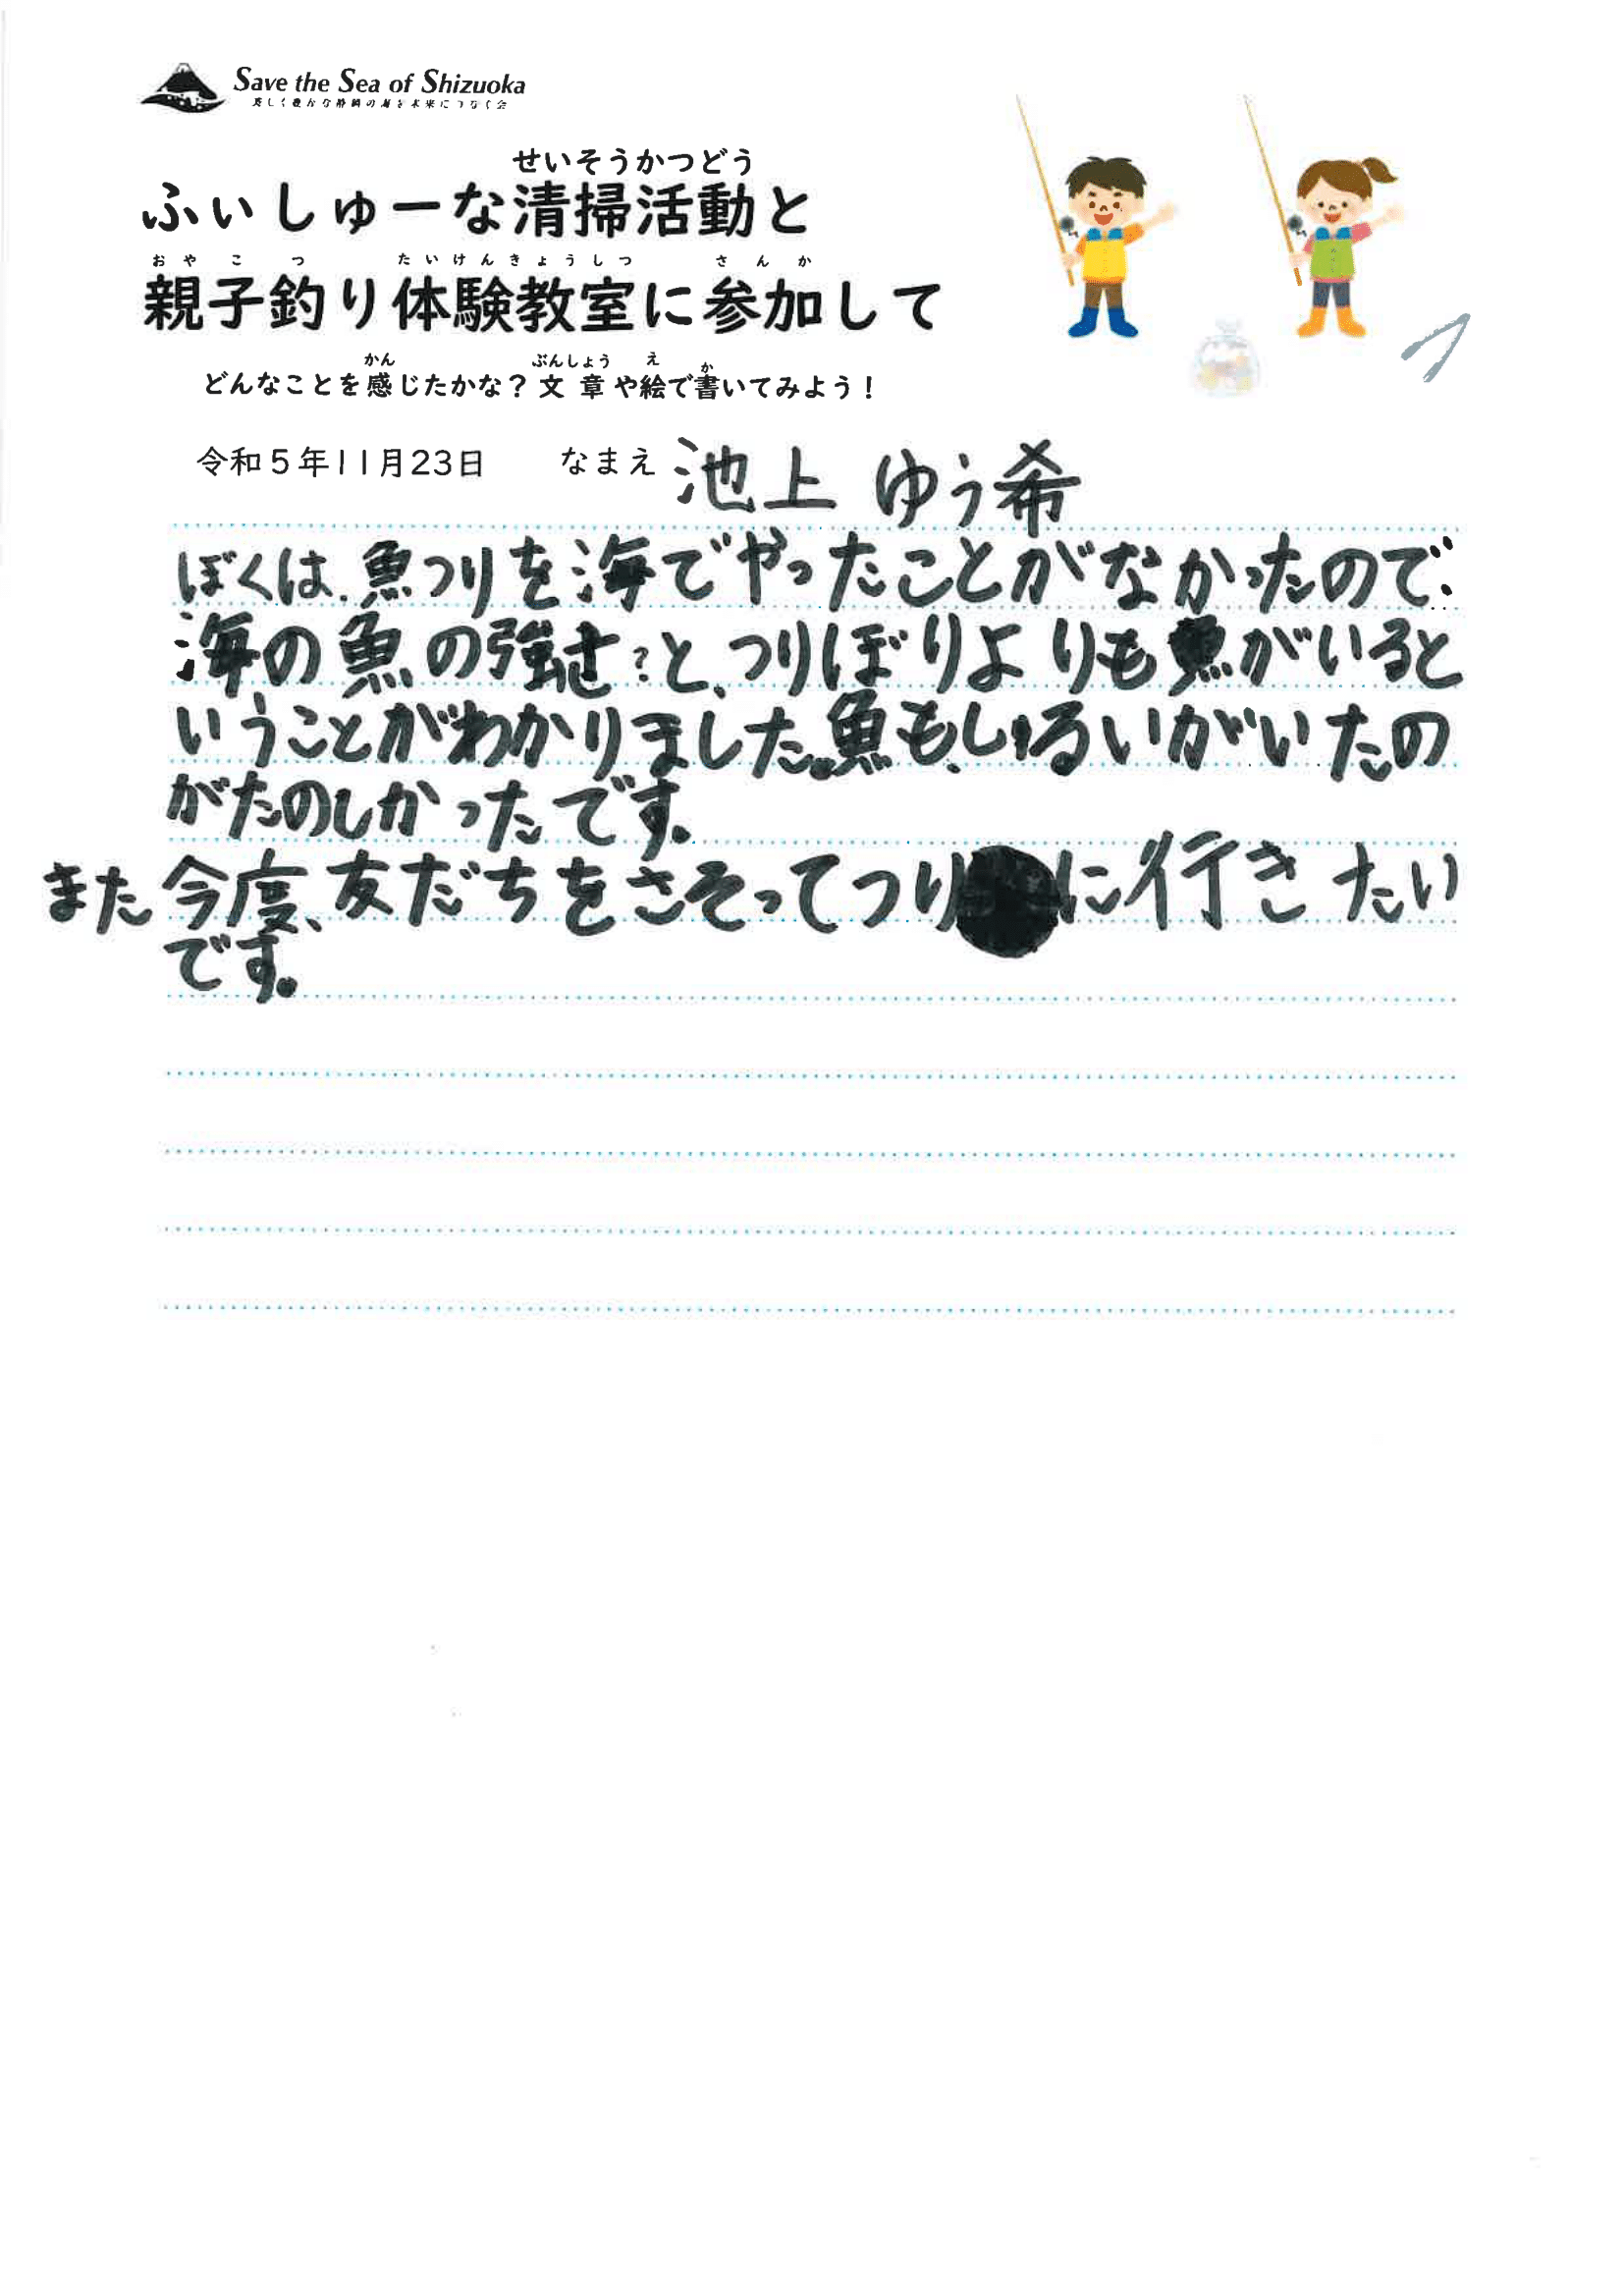 Save the Sea of Shizuoka
美しく豊かな静岡の海を未来につなぐ会
せいそうかつどう
ふぃしゅーな清掃活動と
おやこつ たいけんきょうしつ さんか
親子釣り体験教室に参加して
かん ぶんしょう え か
どんなことを感じたかな?文章や絵で書いてみよう!
令和5年11月23日 なまえ 池上 ゆう希
ぼくは、魚つりを海でやったことがなかったので、
海の魚の強さ?と、つりぼりよりも魚がいると
いうことがわかりました。魚も、しゅるいがいたの
がたのしかったです。
また今度、友だちをさそってつりに行きたい
です。